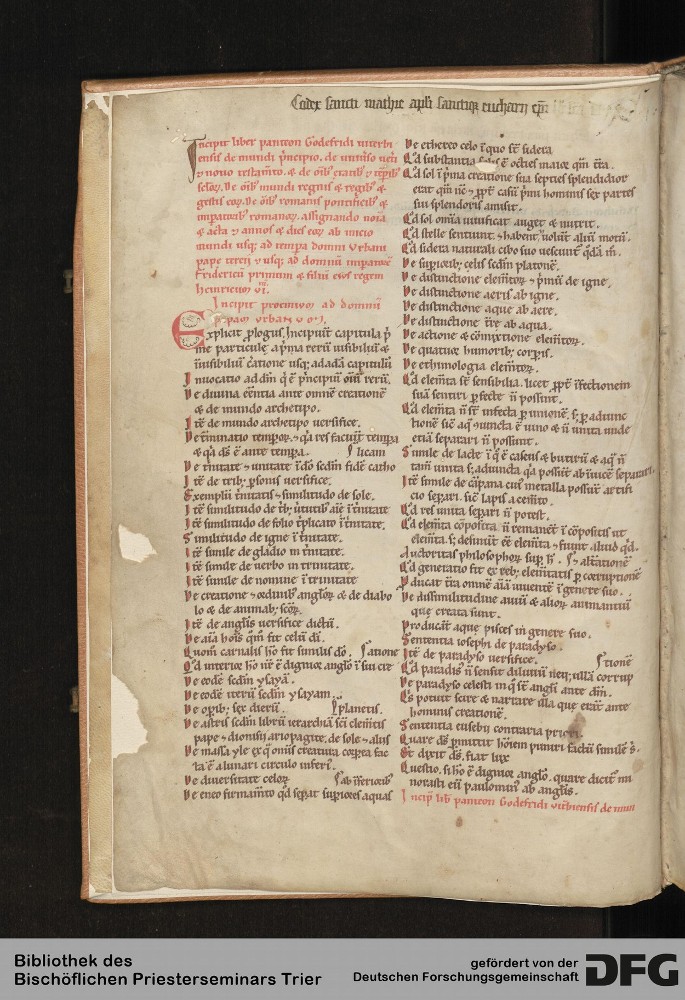 Codex sancti mathie apli sanctiq; eucharii epi
Incipit liber panteon Godefridi viterbi
ensis de mundi pncipio. de uniuso ueti
⁊ nouo testamto. ⁊ de oib; etatib; ⁊ tepib;
seclor. De oib; mundi regnis ⁊ regib; ⁊
gestis eor. De oib; romanis pontificib; ⁊
imparatorib; romanor. assignando noia
⁊ acta ⁊ annos ⁊ dies eor ab inicio
mundi usq; ad tempora domni Urbani
pape tercii ⁊ usq; ad domnu imparatore
Fridericu primum ⁊ filiu eius regem
heinricum vi.
Incipit prohemium ad domnu
papam urbanu
Explicit plogus. Incipiut capitula pi
me particule. a pma reru uisibiliu ⁊
inuisibiliu catione usq; ad ada capitulu
Inuocatio ad dm q e pncipiu oiu reru.
De diuina eentia ante omne creatione
⁊ de mundo archetipo.
Ite de mundo archetipo versifice.
De tminatio tempor. ⁊ q res faciut tempora
⁊ q ds e ante tempora. licam
De tnitate ⁊ unitate i do scdm fide catho
Ite de trib; psonis versifice.
Exemplu tnitatis ⁊ similitudo de sole.
Ite similitudo de folio tplicato i tnitate.
Similitudo de igne i tnitate.
Ite simile de gladio in tnitate.
Ite simile de uerbo in trinitate.
Ite simile de nomine i trinitate
De creatione ⁊ ordinib; anglor ⁊ de diabo
lo ⁊ de animab; scor.
Ite de anglis versifice dictu.
De aia hois qm fit celu di.
Quom carnalis ho fit similis do. ratione
Qd interior ho nr e dignior anglo i sui cre
De eode scdm ysaya.
De eode iteru scdm ysayam.
De opib; sex dieru. planetis.
De astris scdm libru ierarchia sci clemtis
pape ⁊ dionisii ariopagite. de sole ⁊ aliis
De massa yle ex q omis creatura corpea fac
ta e a lunari circulo inferi.
De diuersitate celor ab iferiorib;
De eneo firmamto qd separat supiores aquas
De ethereo celo i quo st sidera
Qd substantia solis e octies maior qm tra.
Qd sol i pma creatione sua septies splendidior
erat qm nc ⁊ ppt casu pmi hominis sex partes
sui splendoris amisit.
Qd sol omia uiuificat auget ⁊ nutrit.
Qd stelle sentiunt ⁊ habent uoluntaliu motu.
Qd sidera naturali cibo suo uescunt qda m.
De supiorib; celis scdm platone.
De distinctione elemtor ⁊ pmu de igne.
De distinctione aeris ab igne.
De distinctione aque ab aere.
De distinctione tre ab aqua.
De actione ⁊ comixtione elemtor.
De quatuor humorib; corpis.
De ethimologia elemtor.
Qd elemta st sensibilia. licet ppt ifectionem
sua sentiri pfecte n possint.
Qd elemta n st infecta p unione. s; p adiunc
tione sic aq ⁊ uncta e uino ⁊ n unita unde
etia separari n possunt.
Simile de lacte i q e caseus ⁊ butiru ⁊ aq n
tam unita s; adiuncta q possut ab inuice separari
Ite simile de capana cui metalla possut artifi
cio separi. sic lapis a cemto.
Qd res unita separi n potest.
Qd elemta coposita n remanet i copositis ut
elemta. s; desinut ee elemta ⁊ fiunt aliud qd.
Auctoritas philosophor sup h. ⁊ altatione
Qd generatio fit ex reb; elemtatis p corruptione
Producat tra omne aia uiuente i genere suo.
De dissimilitudine auiu ⁊ alior animantiu
que creata sunt.
Producat aque pisces in genere suo.
Sententia iosephi de paradyso.
Ite de paradyso versifice. tione
Qd paradis n sensit diluuiu nec ulla corrup
De paradyso celesti in q st angli ante dm.
Qs potuit scire ⁊ narrare illa que erat ante
hominis creatione.
Sententia eusebii contraria priori.
Quare ds pmittit hoiem puniri factu simile s.
Et dixit ds. fiat lux
Questio. si ho e dignior anglo. quare dicit mi
norasti eu paulominus ab anglis.
Incip lib panteon Godefridi viterbiensis de mun
Bibliothek des
Bischöflichen Priesterseminars Trier
gefördert von der
Deutschen Forschungsgemeinschaft
DFG